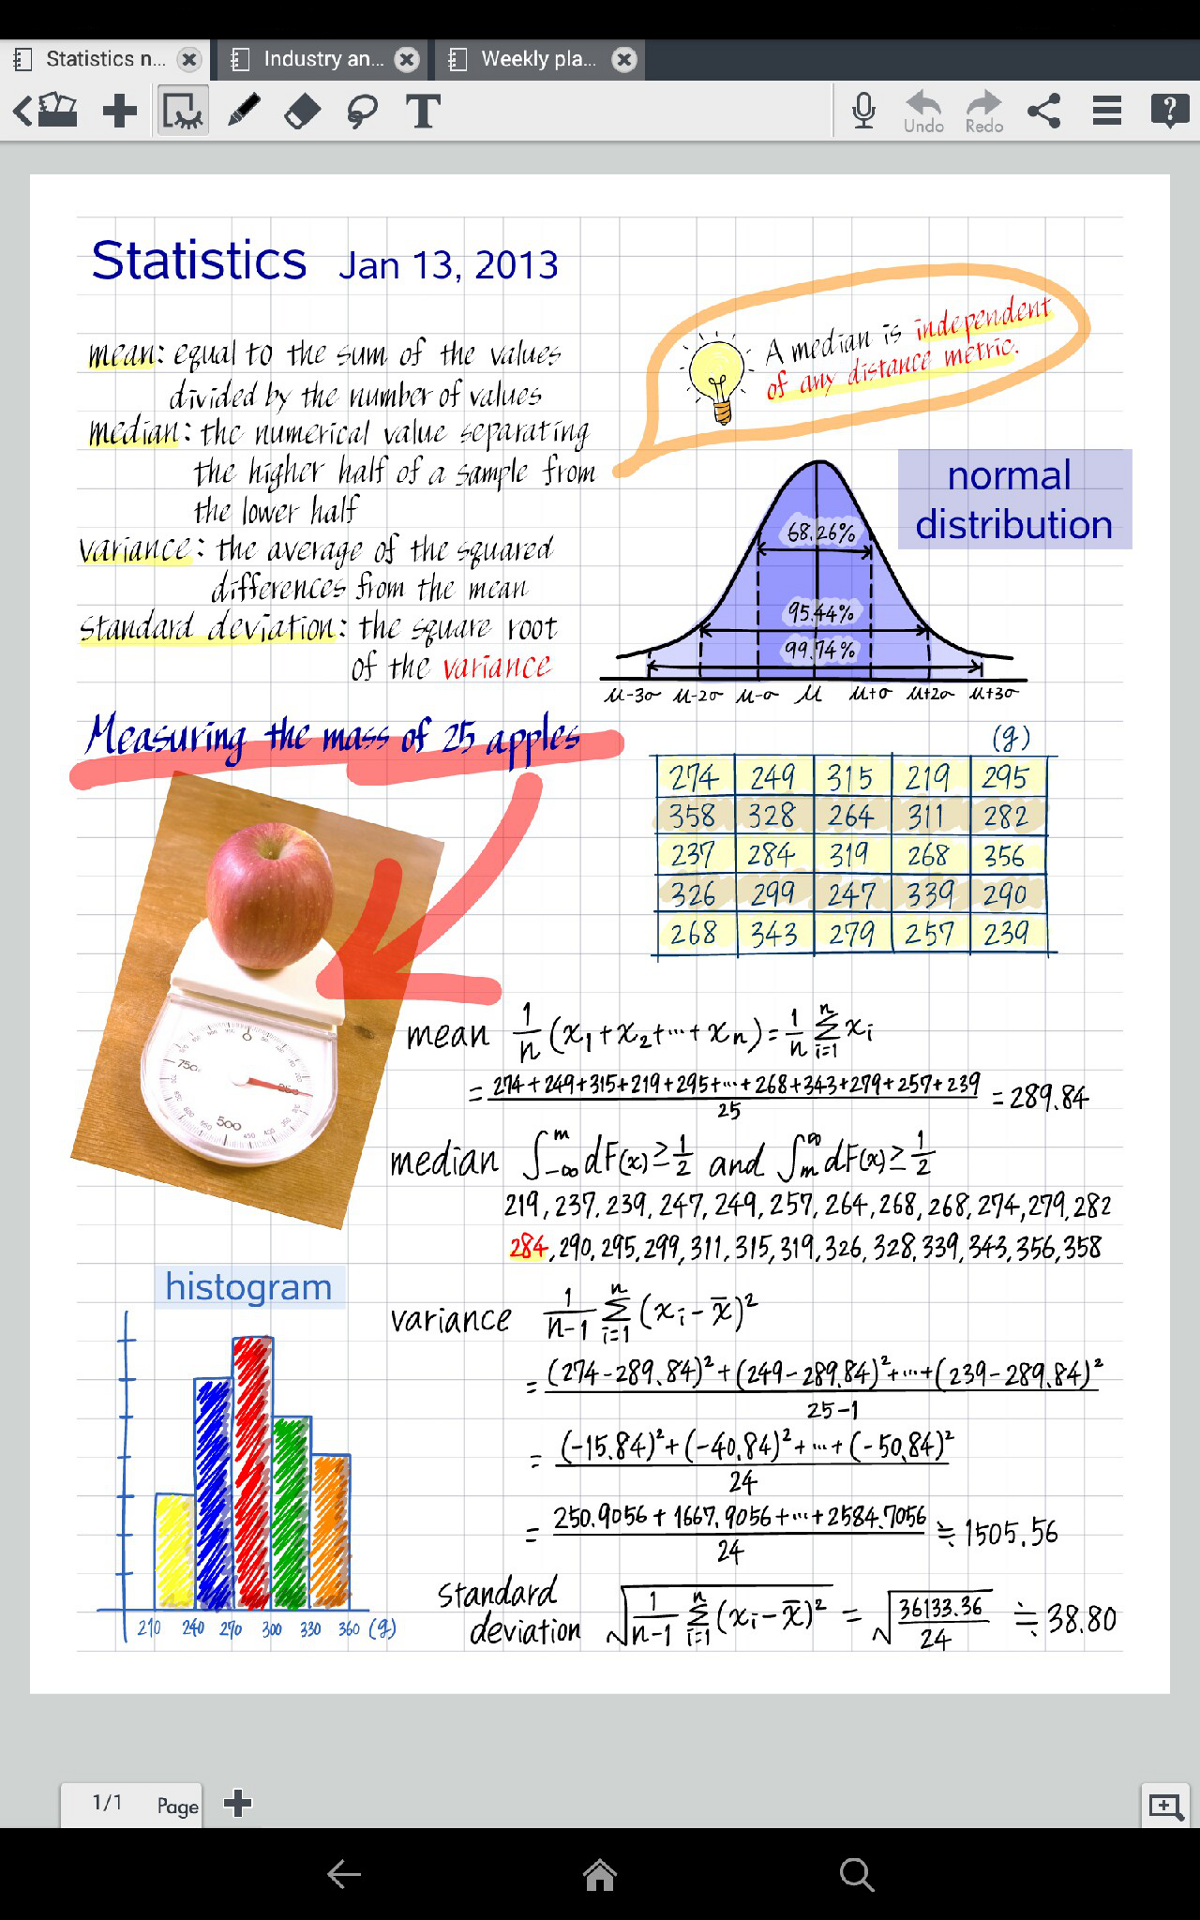 Statistics n...
Industry an...
Weekly pla...
T
Undo
Redo
?
Statistics Jan 13, 2013
mean: equal to the sum of the values
divided by the number of values
median: the numerical value separating
the higher half of a sample from
the lower half
variance: the average of the squared
differences from the mean
standard deviation: the square root
of the variance
A median is independent
of any distance metric.
normal
distribution
68.26%
95.44%
99.74%
μ-3σ μ-2σ μ-σ μ μ+σ μ+2σ μ+3σ
Measuring the mass of 25 apples
(g)
274 249 315 219 295
358 328 264 311 282
237 284 319 268 356
326 299 247 339 290
268 343 279 257 239
0
750
500
mean 1/n (x₁+x₂+…+xₙ)=1/n Σⁿᵢ₌₁ xᵢ
= 274+249+315+219+295+…+268+343+279+257+239 / 25 = 289.84
median ∫_{-∞}^{m} dF(x)≥1/2 and ∫_{m}^{∞} dF(x)≥1/2
219, 237, 239, 247, 249, 257, 264, 268, 268, 274, 279, 282
284, 290, 295, 299, 311, 315, 319, 326, 328, 339, 343, 356, 358
histogram
210 240 270 300 330 360 (g)
variance 1/(n-1) Σⁿᵢ₌₁ (xᵢ-x̄)²
= (274-289.84)²+(249-289.84)²+…+(239-289.84)² / 25-1
= (-15.84)²+(-40.84)²+…+(-50.84)² / 24
= 250.9056+1667.9056+…+2584.7056 / 24 ≒ 1505.56
standard
deviation √(1/(n-1) Σⁿᵢ₌₁ (xᵢ-x̄)²) = √(36133.36/24) ≒ 38.80
1/1 Page